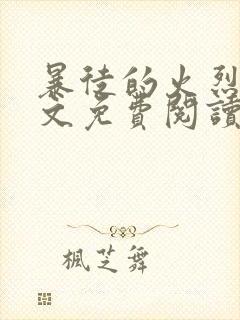 暴徒的火烈
文免費閱讀
楓芝舞